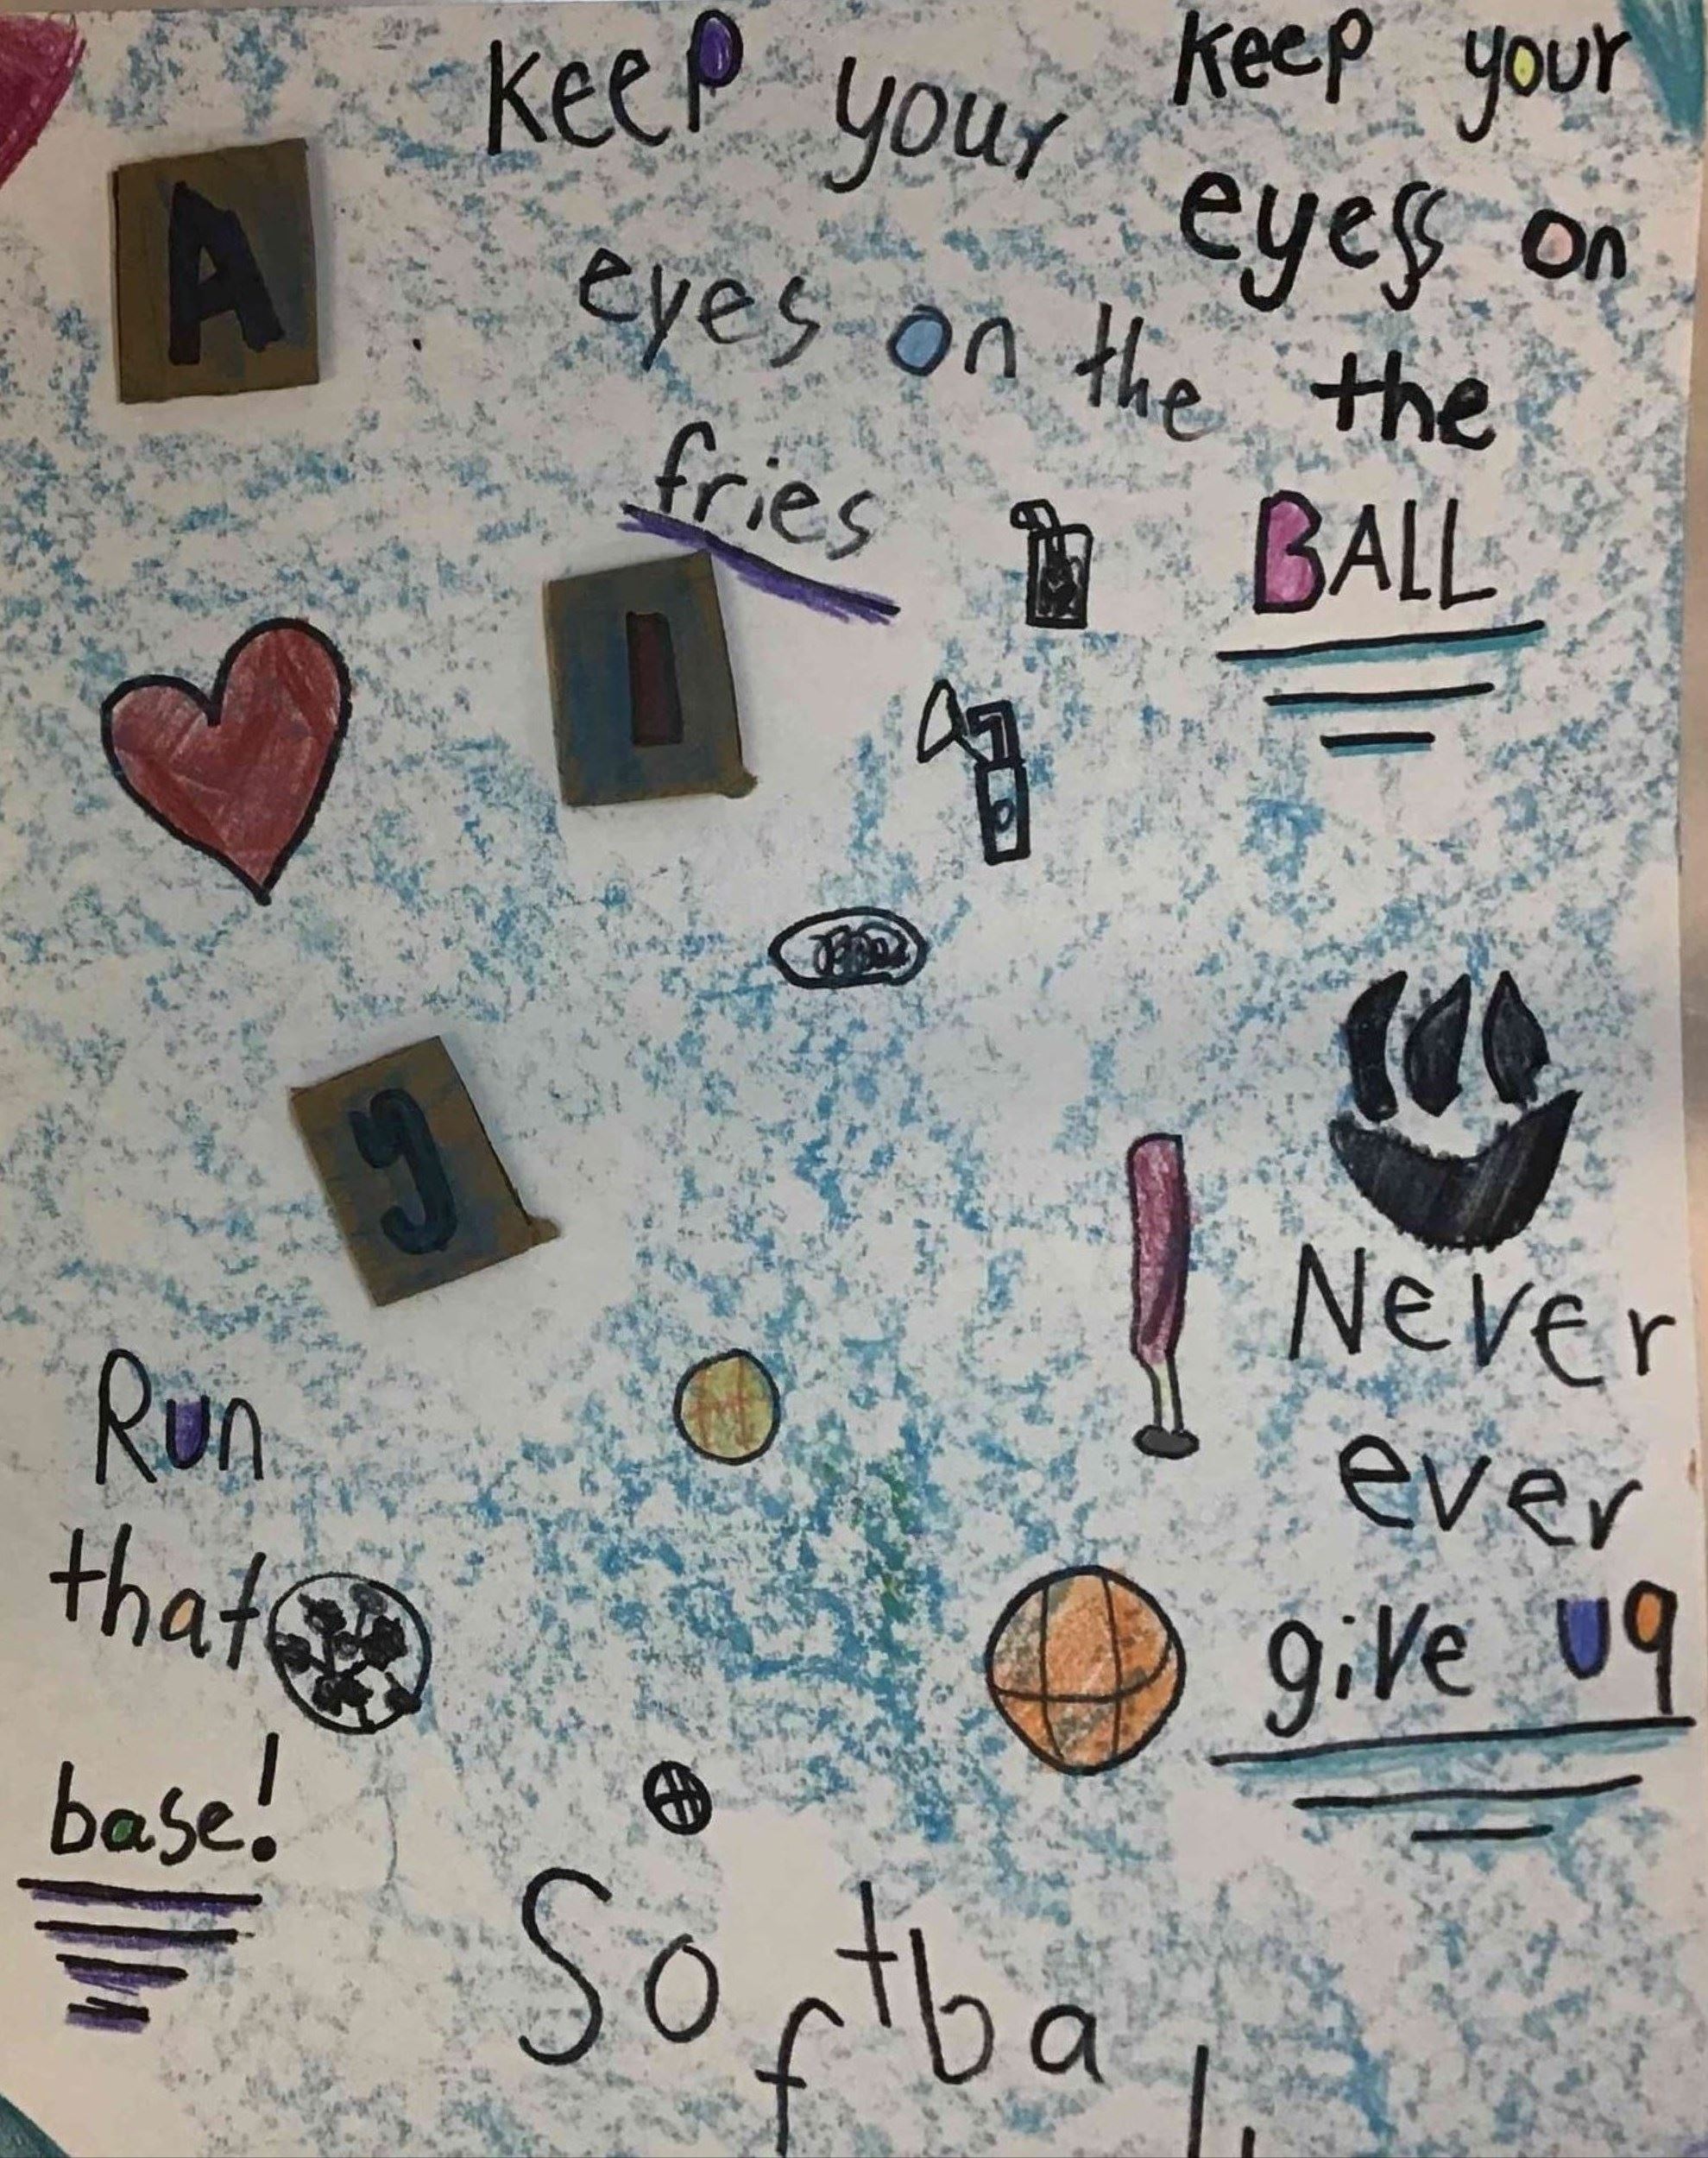 Keep your
eyes on the
fries
Keep your
eyess on
the
BALL
A
I
y
Never
ever
give up
Run
that
base!
Softball